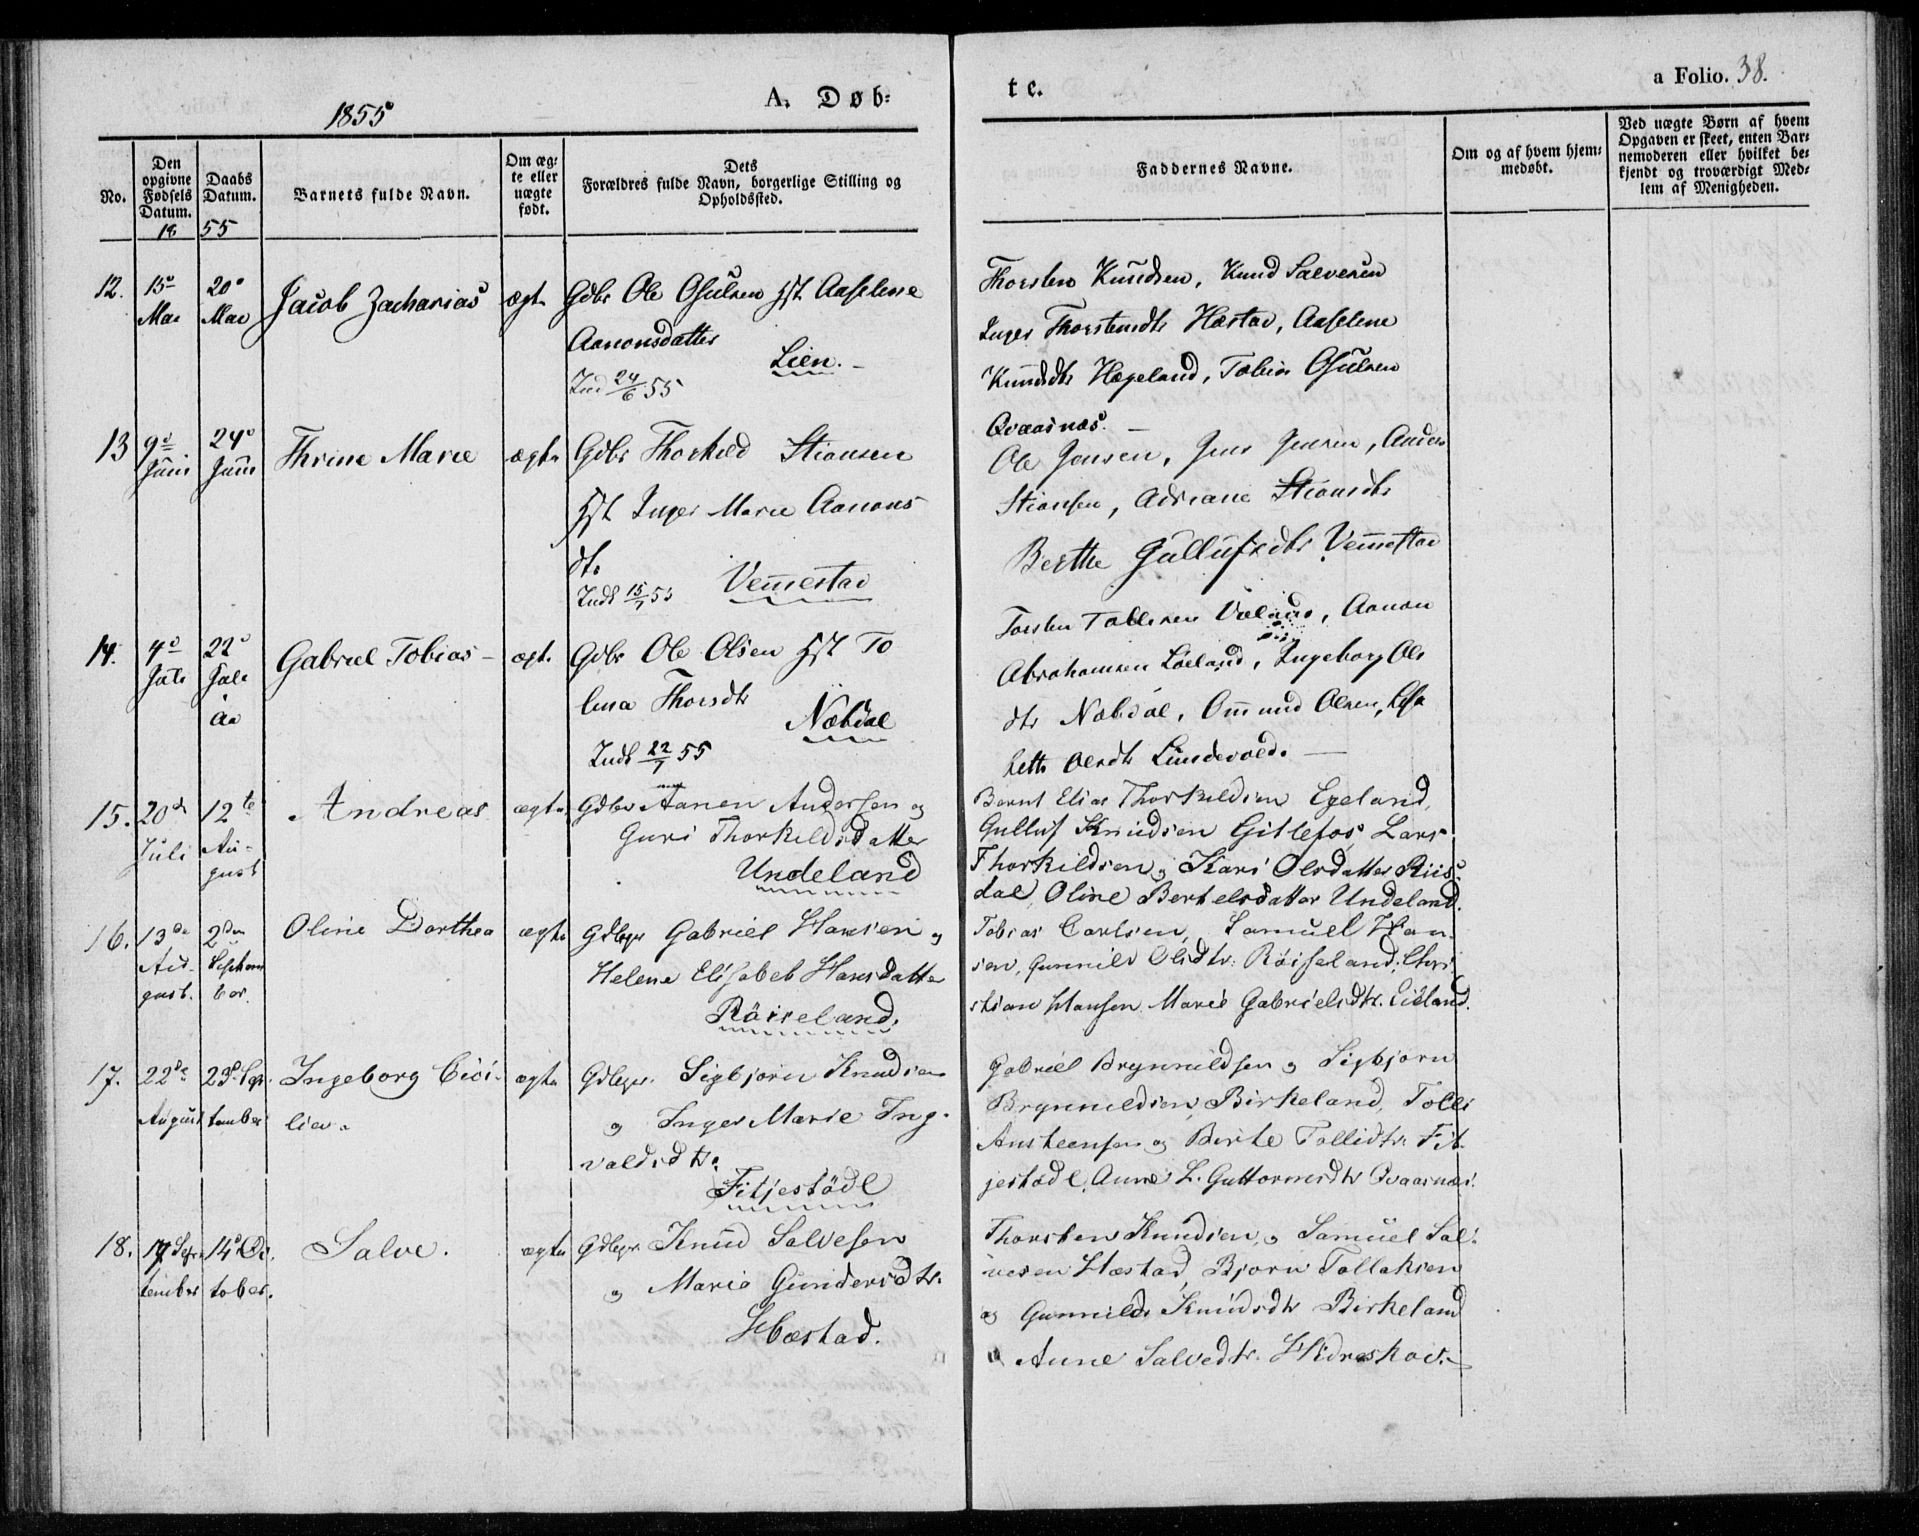 1855
A. Døb-
te.
a Folio. 38.
No.
Den opgivne Fødsels Datum.
Daabs Datum.
18 55
Barnets fulde Navn.
Om ægte eller uægte født.
Dets
Forældres fulde Navn, borgerlige Stilling og
Opholdssted.
Faddernes Navne.
Om og af hvem hjem-
medøbt.
Ved uægte Børn af hvem
Opgaven er skeet, enten Bar-
nemoderen eller hvilket be-
kjendt og troværdigt Med-
lem af Menigheden.
12. 15d Mai 20d Mai Jacob Zacharias ægte Gdbr Ole Osulsen Hst Aaselene
Aanonsdatter
Lien.
Ind 24/6 55
Thorsten Knudsen, Knud Salvesen
Inger Thorstensdtr Hæstad, Aaselene
Knudsdtr Hægeland, Tobias Osulsen
Qvaasnæs.
13 9d Juni 24d Juni Thrine Marie ægte Gdbr Thorkild Stiansen
Hst Inger Marie Aanons
dtr
Vennestad
Indt 15/7 55
Ole Jensen, Jens Jensen, Anders
Stiansen, Adriane Stiansdtr
Berthe Gullufsdtr Vennestad
14. 4d Juli 22d Juli Gabriel Tobias ægte Gdbr Ole Olsen Hst To
lena Thorsdtr
Næbdal
Indt 22/7 55
Torsten Tollesen Væland, Aanon
Abrahamsen Løeland, Ingeborg Ols
dtr Næbdal, Ommund Olsen, Elisa
beth Olsdtr Lindevold.
15. 20de Juli 12te August Andreas ægte Gdbr Aanen Andersen og
Guri Thorkildsdatter
Undeland
Bernt Elias Thorkildsen Egeland,
Gulluf Knudsen Gitlefos, Lars
Thorkildsen og Kari Olsdatter Riis-
dal, Oline Bertelsdatter Undeland.
16. 13de August. 2den Septbr. Oline Dorthea ægte Gdbgr Gabriel Hansen og
Helene Elisabet Hansdatter
Röiseland.
Tobias Carlsen, Samuel Han-
sen, Gunnild Olsdtr. Röiseland, Chri-
stian Hansen, Marie Gabrielsdtr. Eieland.
17. 22de August 23de September Ingeborg Cici-
liea. ægte Gdbgr. Sigbjørn Knudsen
og Inger Marie Ing-
valdsdtr.
Fitjestödl
Gabriel Brynnildsen og Sigbjørn
Brynnildsen, Birkeland, Tolli
Ansteensen og Birte Tollidtr. Fit-
jestödl, Anne L. Guttormsdtr Qvaasnæs.
18. 17 September 14d October. Salve. ægte Gdbgr. Knud Salvesen
og Marie Gundersdtr.
Hæstad.
Thorsten Knudsen og Samuel Sal-
vesen Hæstad, Bjørn Tollaksen
og Gunnild Knudsdtr Birkeland
Anne Salvedtr.